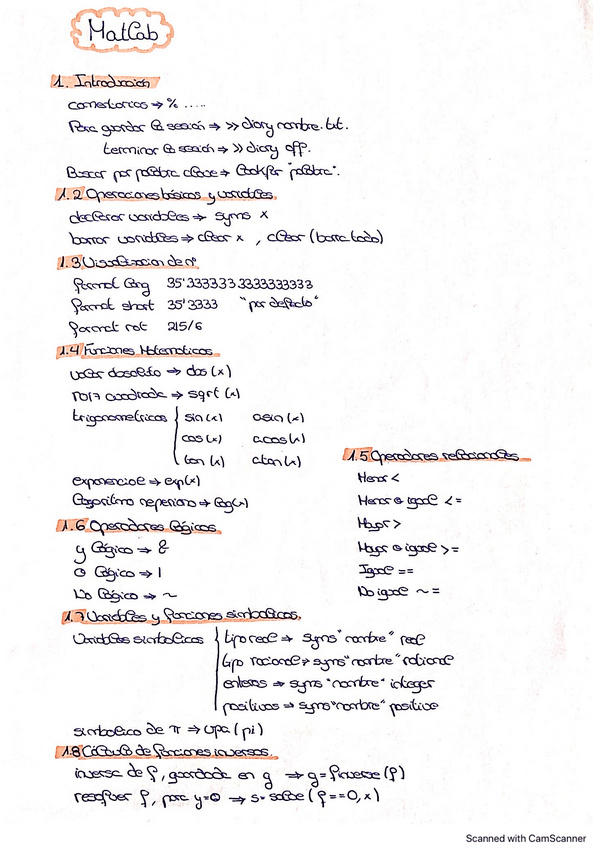 MatLab
1. Introducción
comentarios → % .....
Para guardar la sesión → >> diary nombre.txt.
terminar la sesión → >> diary off.
Buscar por palabra clave → lookfor "palabra".
1.2 Operaciones básicas y variables
declarar variables → syms x
borrar variables → clear x , clear (borra todo)
1.3 Visualización de nº
format long 35'3333333333333333
format short 35'3333 "por defecto"
format rat 215/6
1.4 Funciones Matematicas
valor absoluto → abs (x)
raíz cuadrada → sqrt (x)
trigonometricas sin (x) asin (x)
cos (x) acos (x)
tan (x) atan (x)
exponencial → exp(x)
logaritmo neperiano → log(x)
1.5 Operadores relacionales
Menor <
Menor o igual <=
Mayor >
Mayor o igual >=
Igual ==
No igual ~=
1.6 Operadores lógicos
y lógico → &
o lógico → |
No lógico → ~
1.7 Variables y funciones simbolicas.
Variables simbolicas tipo real → syms "nombre" real
tipo racional → syms "nombre" rational
enteros → syms "nombre" integer
positivos → syms "nombre" positive
simbolico de π → vpa (pi)
1.8 Cálculo de funciones inversas.
inversa de f, guardada en g → g = finverse (f)
resolver f, para y=0 → s = solve (f==0, x)
Scanned with CamScanner